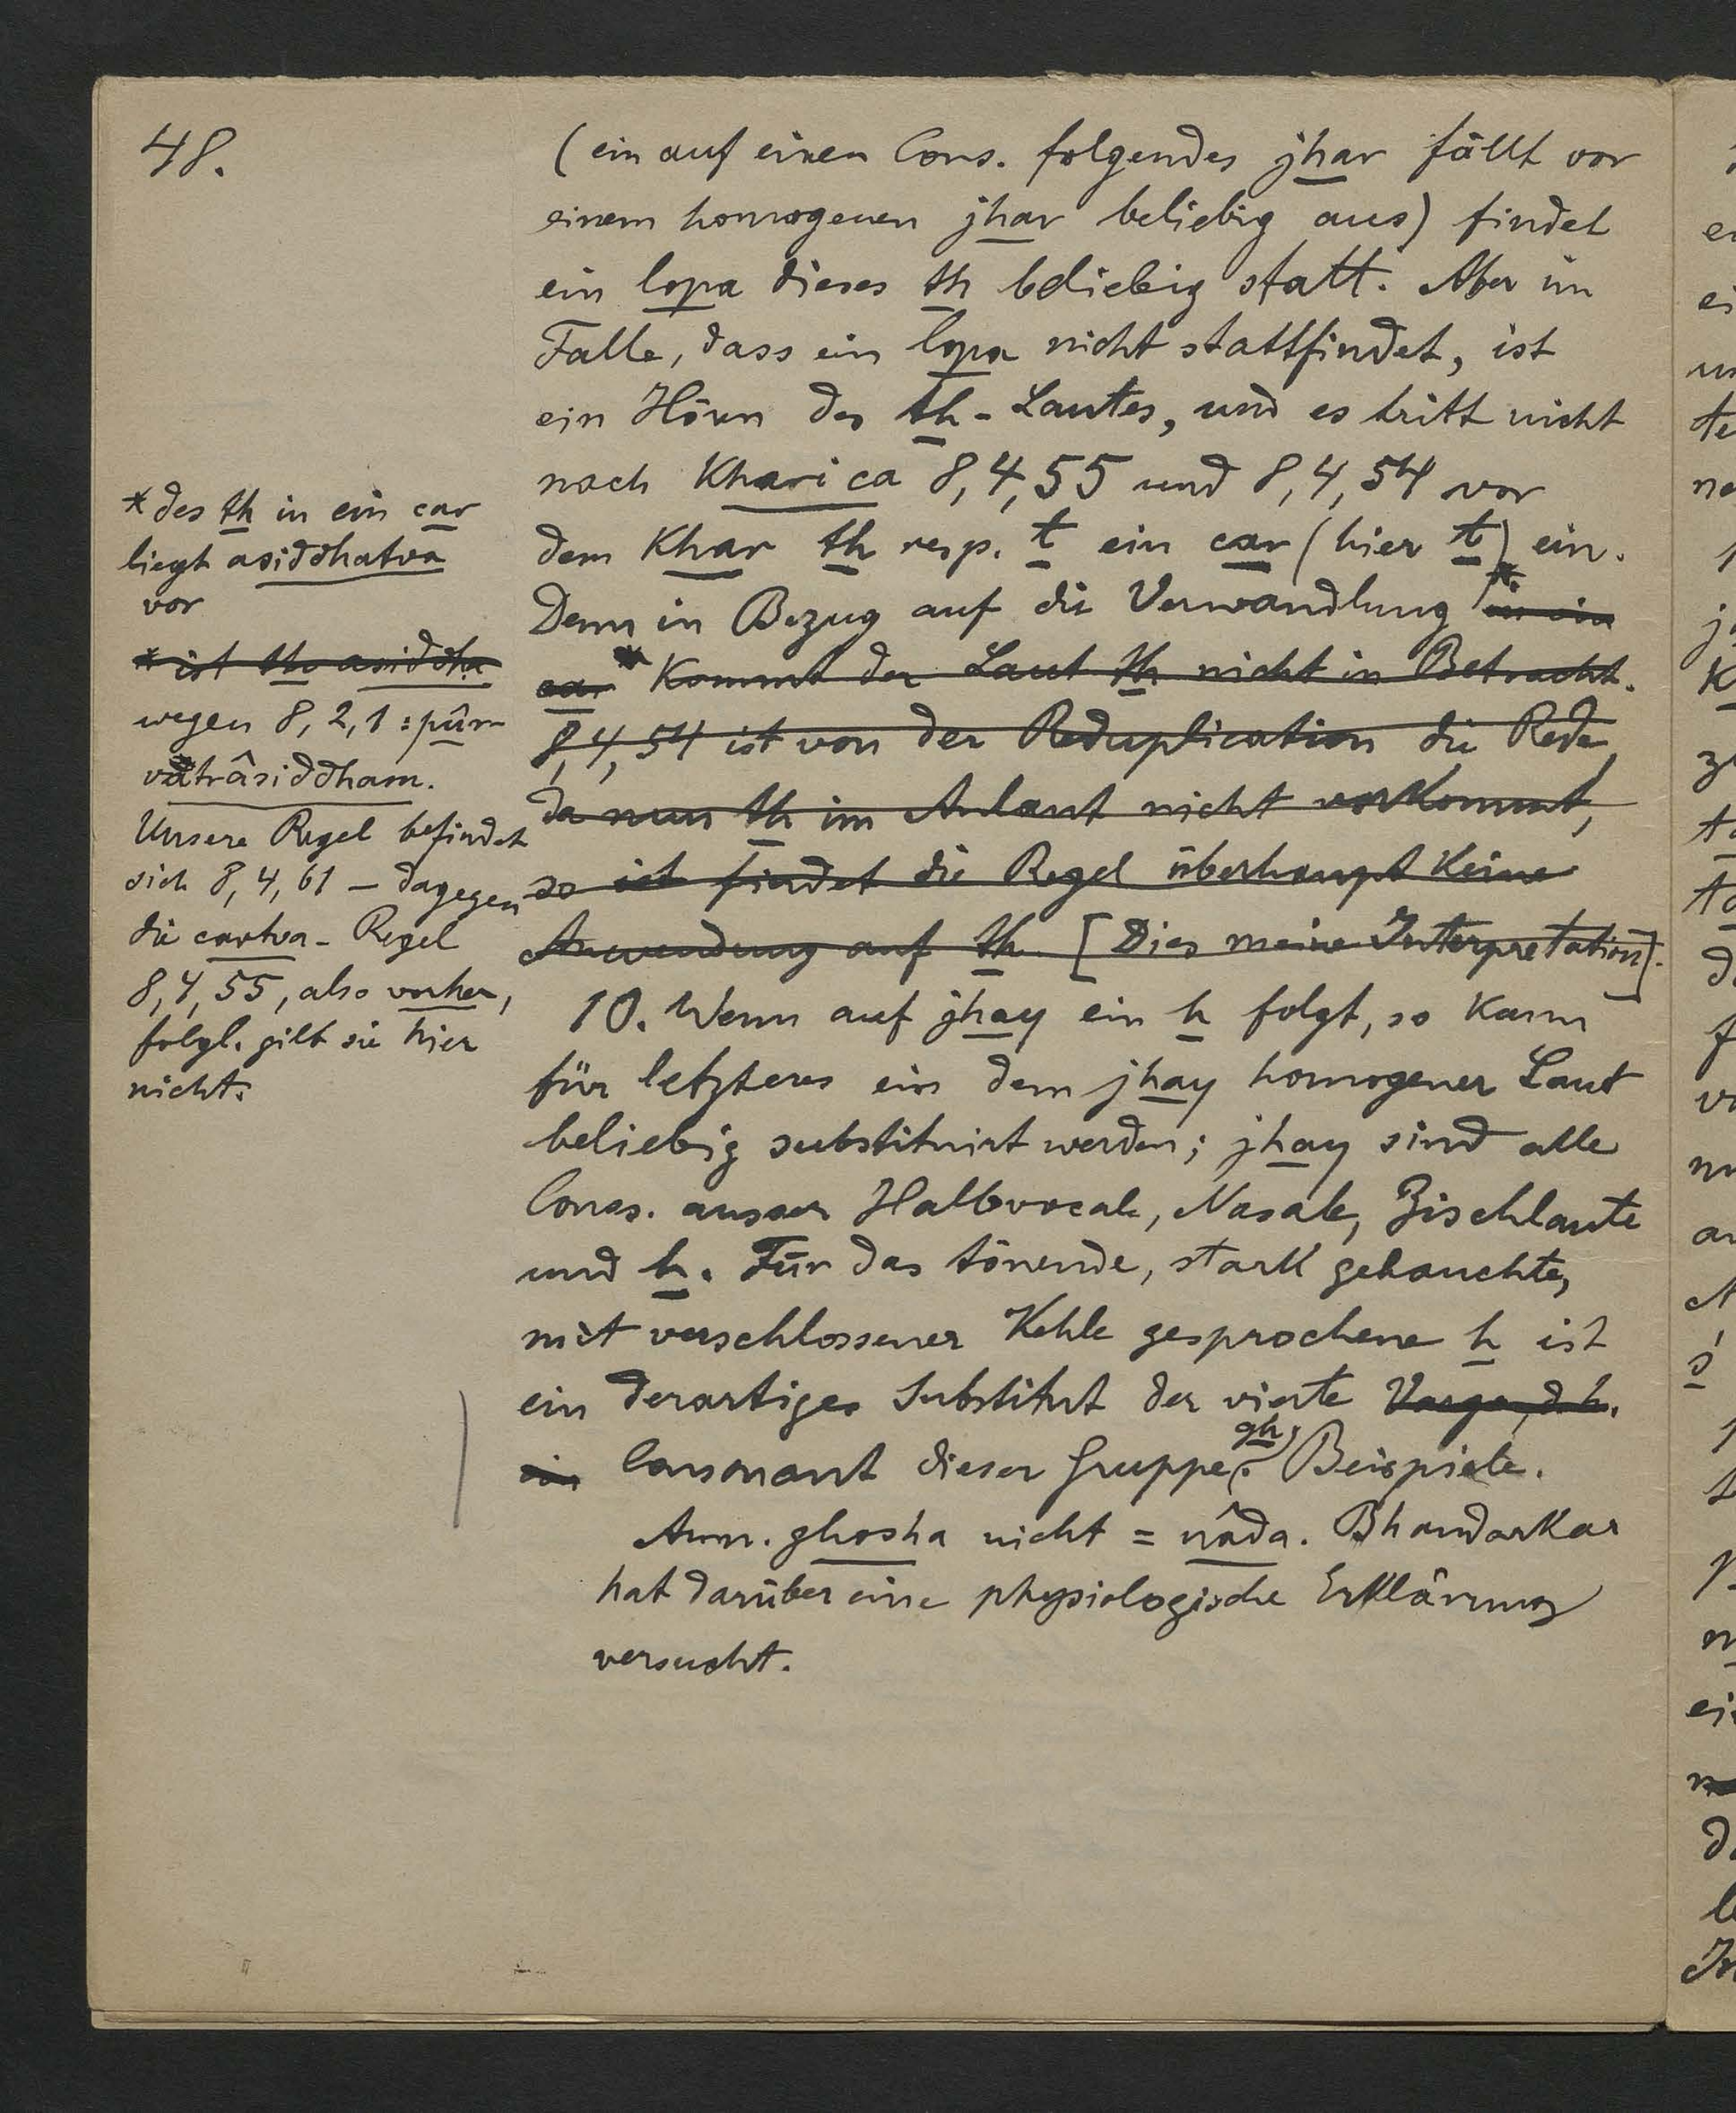 48.
(ein auf einen Cons. folgendes jhar fällt vor
einem homogenen jhar beliebig aus) findet
ein lopa dieses th beliebig statt. Aber im
Falle, dass ein lopa nicht stattfindet, ist
ein Hören des th-Lautes, und es tritt nicht
nach Khari ca 8,4,55 und 8,4,54 vor
dem Khar th resp. t ein car (hier t) ein.
Denn in Bezug auf die Verwandlung * in ein
car * Kommt der Laut th nicht in Betracht.
8,4,54 ist von der Reduplication die Rede,
da nun th im Anlaut nicht vorkommt,
so ist findet die Regel überhaupt Keine
Anwendung auf th. [Dies meine Interpretation].
10. Wenn auf jhay ein h folgt, so Kann
für letzteres ein dem jhay homogener Laut
beliebig substituirt werden; jhay sind alle
Cons. ausser Halbvocale, Nasale, Zischlaute
und h. Für das tönende, stark gehauchte,
mit verschlossener Kehle gesprochene h ist
ein derartiges Substitut der vierte Varga, d.h.
ein Consonant dieser Gruppe (gh). Beispiele.
Anm. ghosha nicht = nâda. Bhandarkar
hat darüber eine physiologische Erklärung
versucht.
* des th in ein car
liegt asiddhatva
vor
* ist th asiddha
wegen 8,2,1: pûr-
vatrâsiddham.
Unsere Regel befindet
sich 8,4,61 — dagegen
die cartva-Regel
8,4,55, also vorher,
folgl. gilt sie hier
nicht.